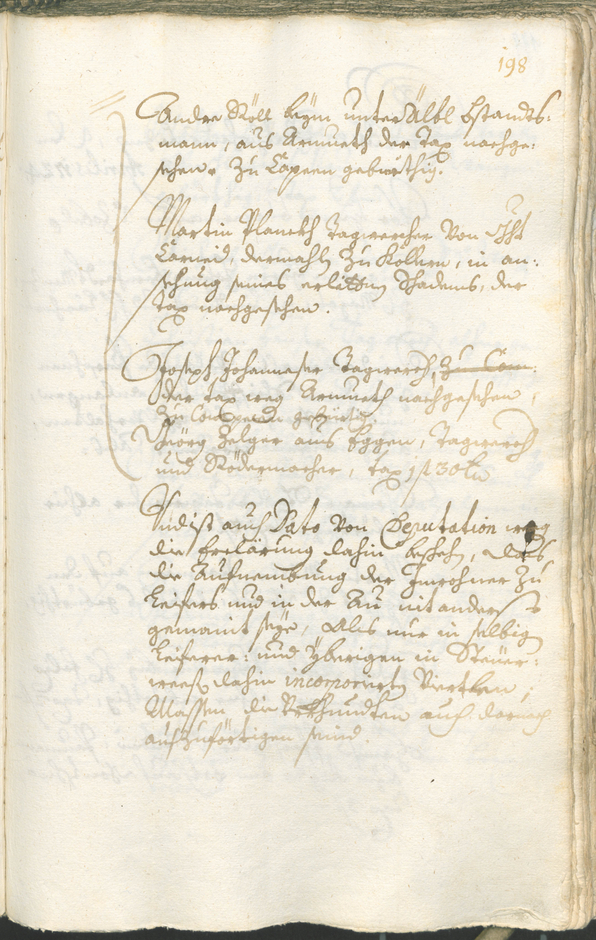 198
Andre Röll beÿm unter Älbl bstandts:
mann, aus Armueth der Tax nachge:
sehen. Zu Capern gebürthig.
Martin Planckh Tagwercher von
Carneid, dermahln zu Kollern, in an:
sehung seines erlittnen Schadens, der
Tax nachgesehen.
Joseph Johanneser Tagwerch, zu Com:
der tax weg Armueth nachgesehen,
zu gebürtig
Geörg Zelger aus Eggen, Tagwerch
und Rödermacher, tax 1 f 30 kr
Und ist auch Dato von Deputation weg
die Erclärung dahin beschehn, das
die Aufnembung der Inwohner zu
Leifers und in der Au nit anders
gemaint seÿe, als nur in selbig
Leiferer: und Yberigen in Steür:
weesen dahin incorporirten Viertlen,
Massen die Urkhundten auch darnach
auszuförtigen seind.